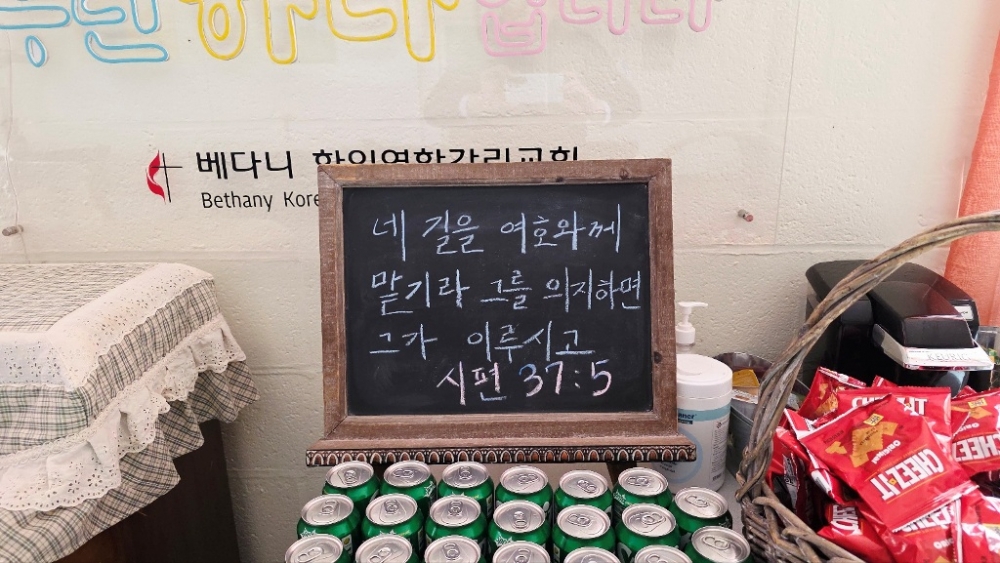 베다니 한인연합감리교회
Bethany Kore
네 길을 여호와께
맡기라 그를 의지하면
그가 이루시고
시편 37:5
CHEEZ-IT
ORIGINAL
KEURIG